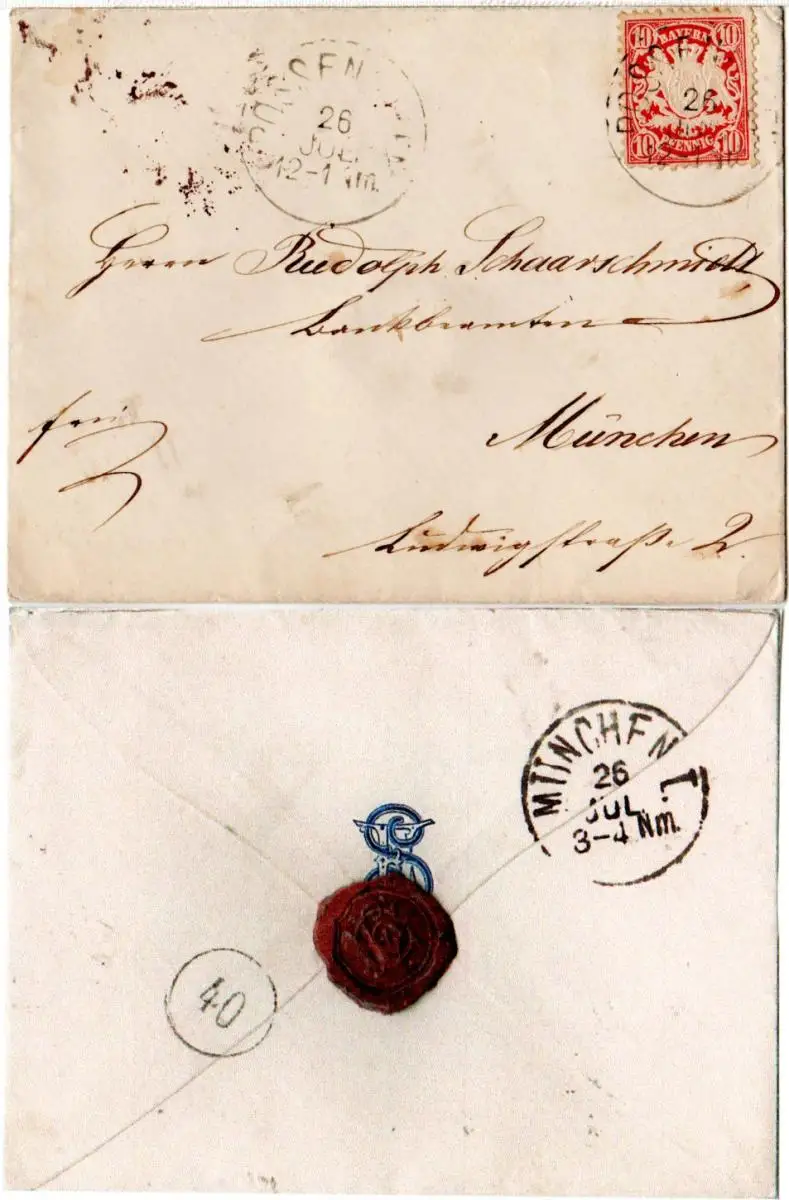 26
JUL
12-1 Nm.
10 BAYERN 10
26
10 PFENNIG 10
Herrn Rudolph Schaarschmidt
Bankbeamten
frei
München
Ludwigstraße 2.
MÜNCHEN I.
26
JUL
3-4 Nm.
40